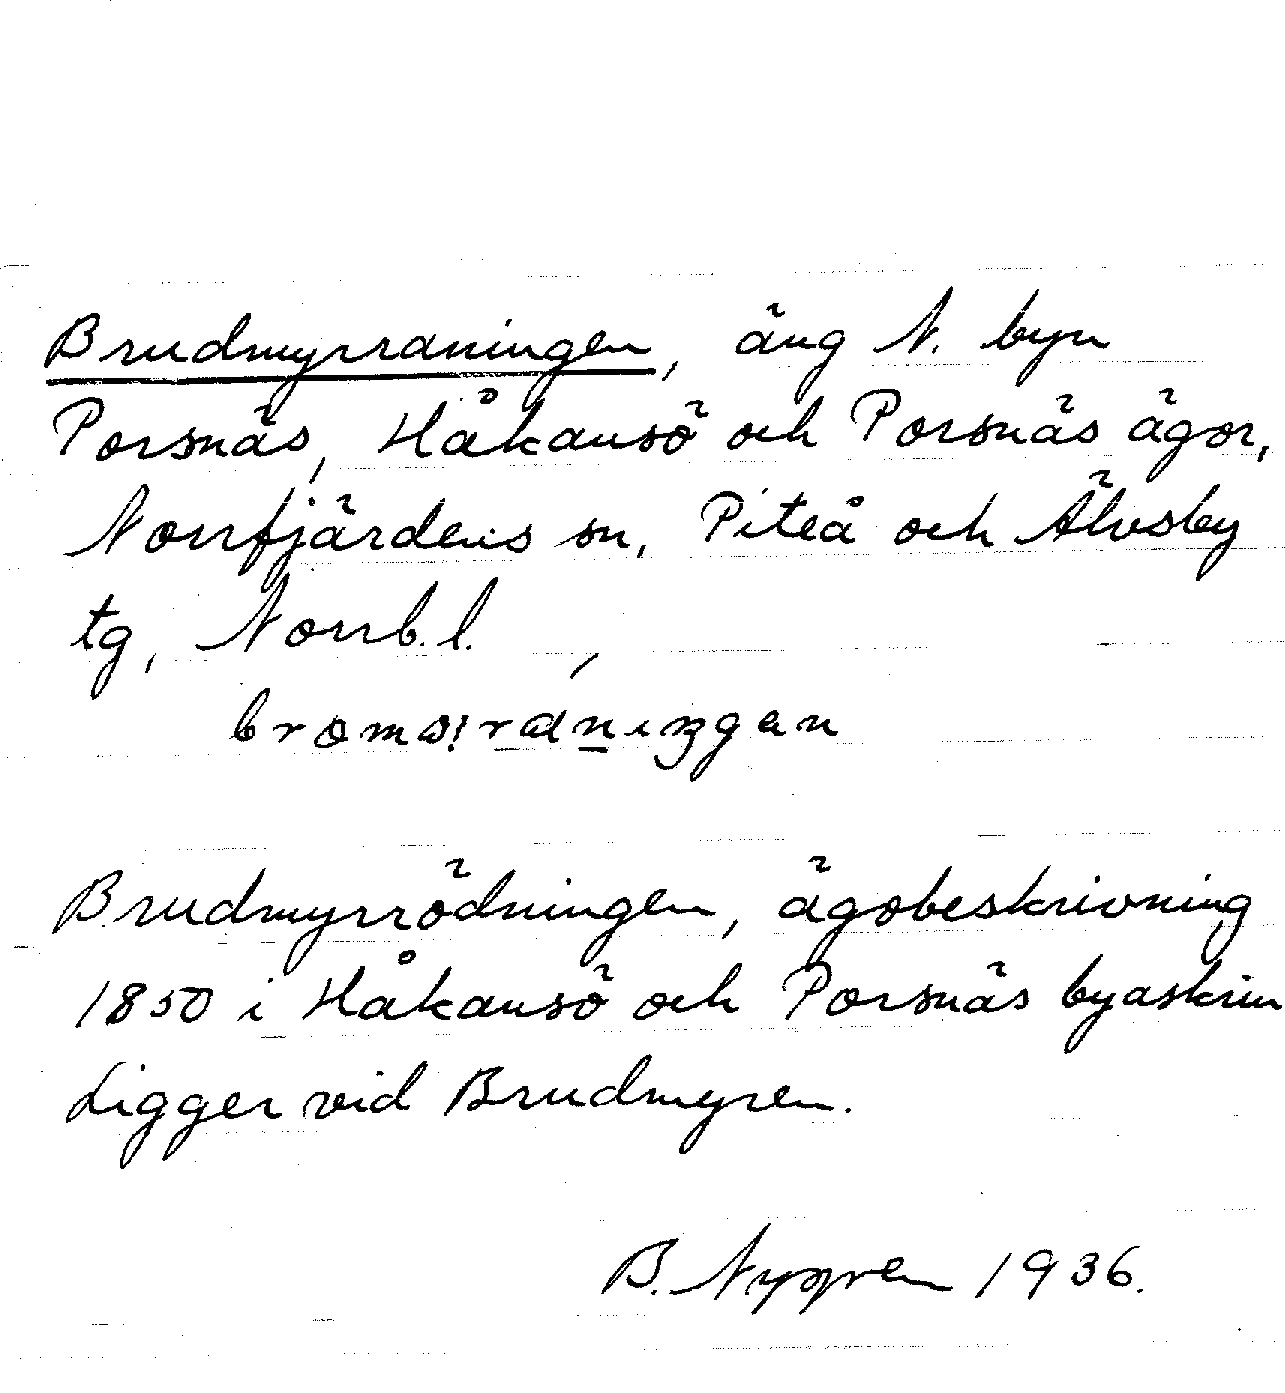 Brudmyrraningen, äng N. byn
Porsnäs, Håkansö och Porsnäs ägor,
Norrfjärdens sn, Piteå och Älvsby
tg, Norrb. l.
Brudmyrrödningen, ägobeskrivning
1850 i Håkansö och Porsnäs byaskrin
Ligger vid Brudmyren.
B. Nygren 1936.